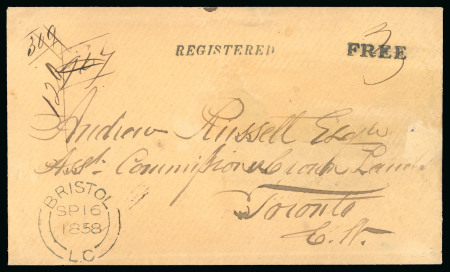 309
REGISTERED
FREE
3
Andrew Russell Esqre
Asst. Commissioner Crown Lands
Toronto
C.W.
BRISTOL
SP 16
1858
L.C.